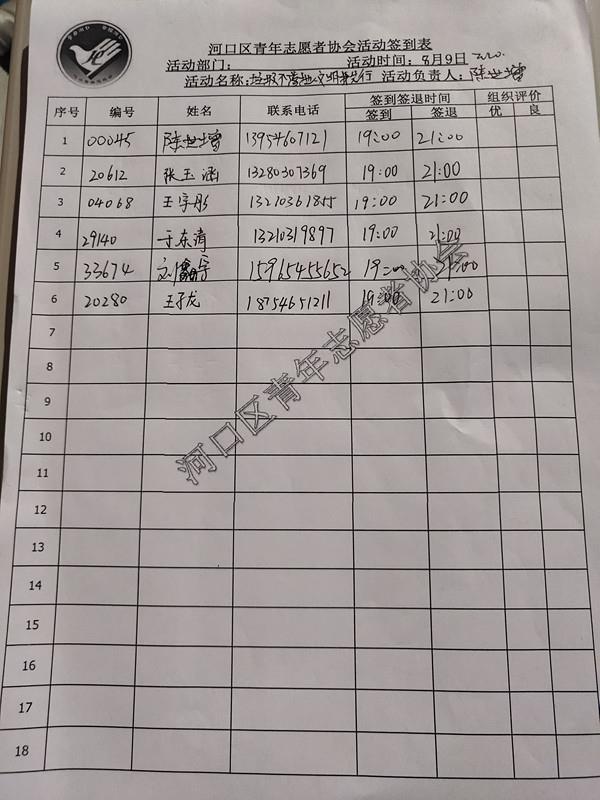 河口区青年志愿者协会活动签到表
活动部门: 活动时间: 8月9日
活动名称: 垃圾不落地文明 行 活动负责人: 陈世增
序号 编号 姓名 联系电话 签到签退时间 组织评价
签到 签退 优 良
1 00045 陈世增 13954607121 19:00 21:00
2 20612 张玉涵 13280307369 19:00 21:00
3 04068 王宇彤 13210361855 19:00 21:00
4 29140 于东清 13210319897 19:00 21:00
5 33674 刘 宇 15965455652 19:00 21:00
6 20280 王子龙 18754651211 19:00 21:00
7
8
9
10
11
12
13
14
15
16
17
18
河口区青年志愿者协会